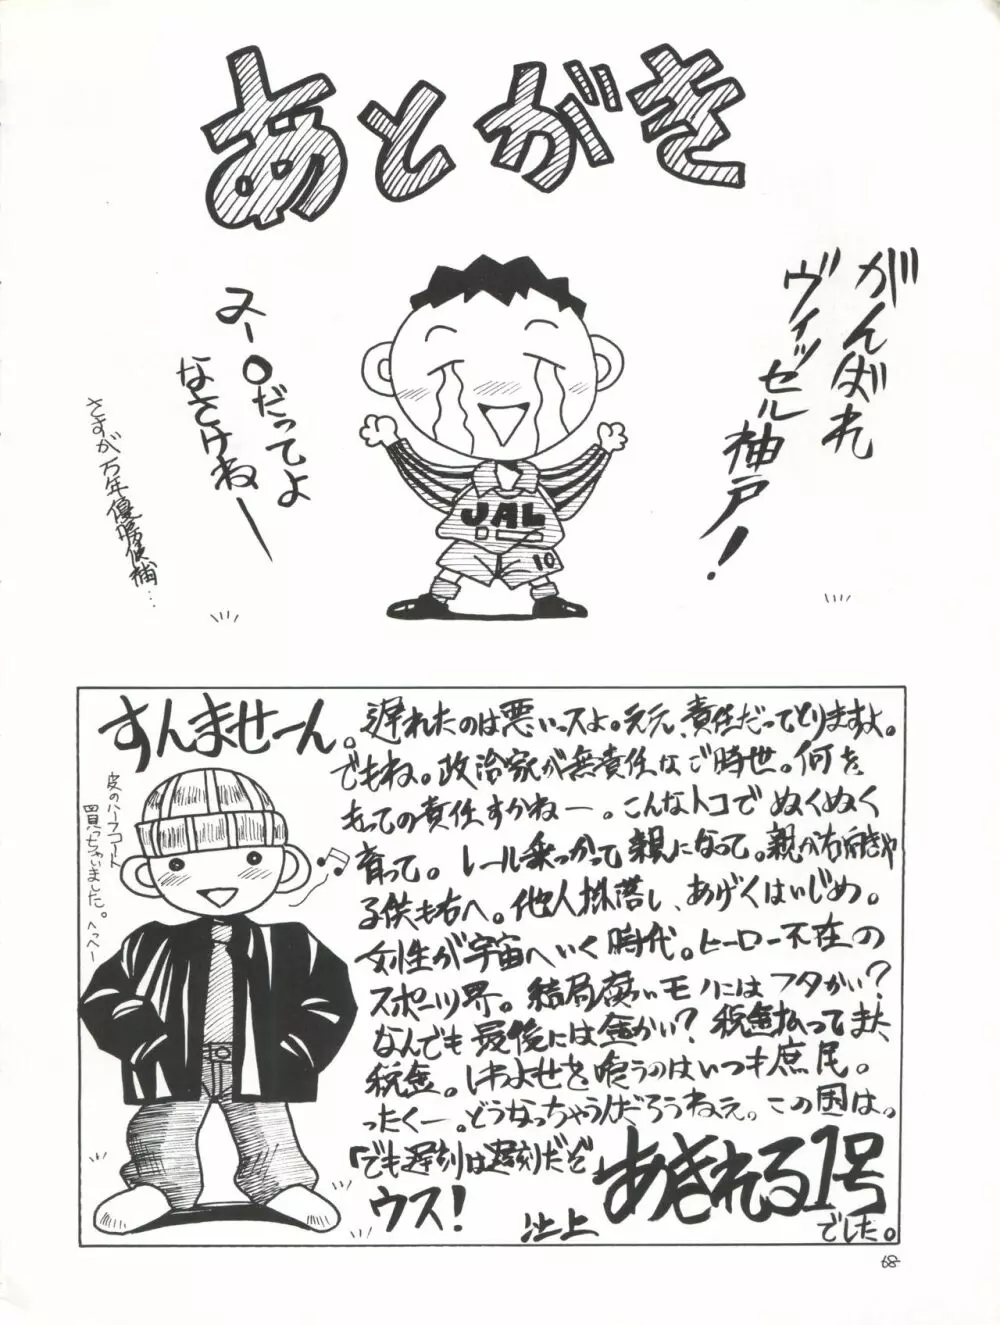 あとがき
がんばれ
ヴィッセル神戸!
JAL
10
スー〇だってよ
なさけねー
さすが万年優勝候補…
すんませーん。
遅れたのは悪いっスよ。ええ、責任だってとりますよ。
でもね。政治家が無責任なご時世。何を
もっての責任すかねー。こんなトコでぬくぬく
育って。レール乗っかって親になって。親が右向きゃ
子供も右へ。他人蹴落し、あげくはいじめ。
女性が宇宙へいく時代。ヒーロー不在の
スポーツ界。結局腐いモノにはフタかい?
なんでも最後には金かい? 税金払ってまた、
税金。しわよせを喰うのはいつも庶民。
ったくー。どうなっちゃうんだろうねえ。この国は。
「でも遅刻は遅刻だぞ」
ウス!
池上
あきれる1号
でした。
皮のハーフコート
買っちゃいました。へっへー
68